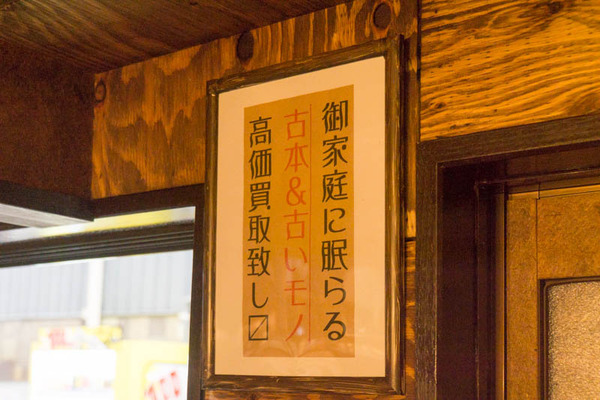 御家庭に眠らる
古本&古いモノ
高価買取致し〼